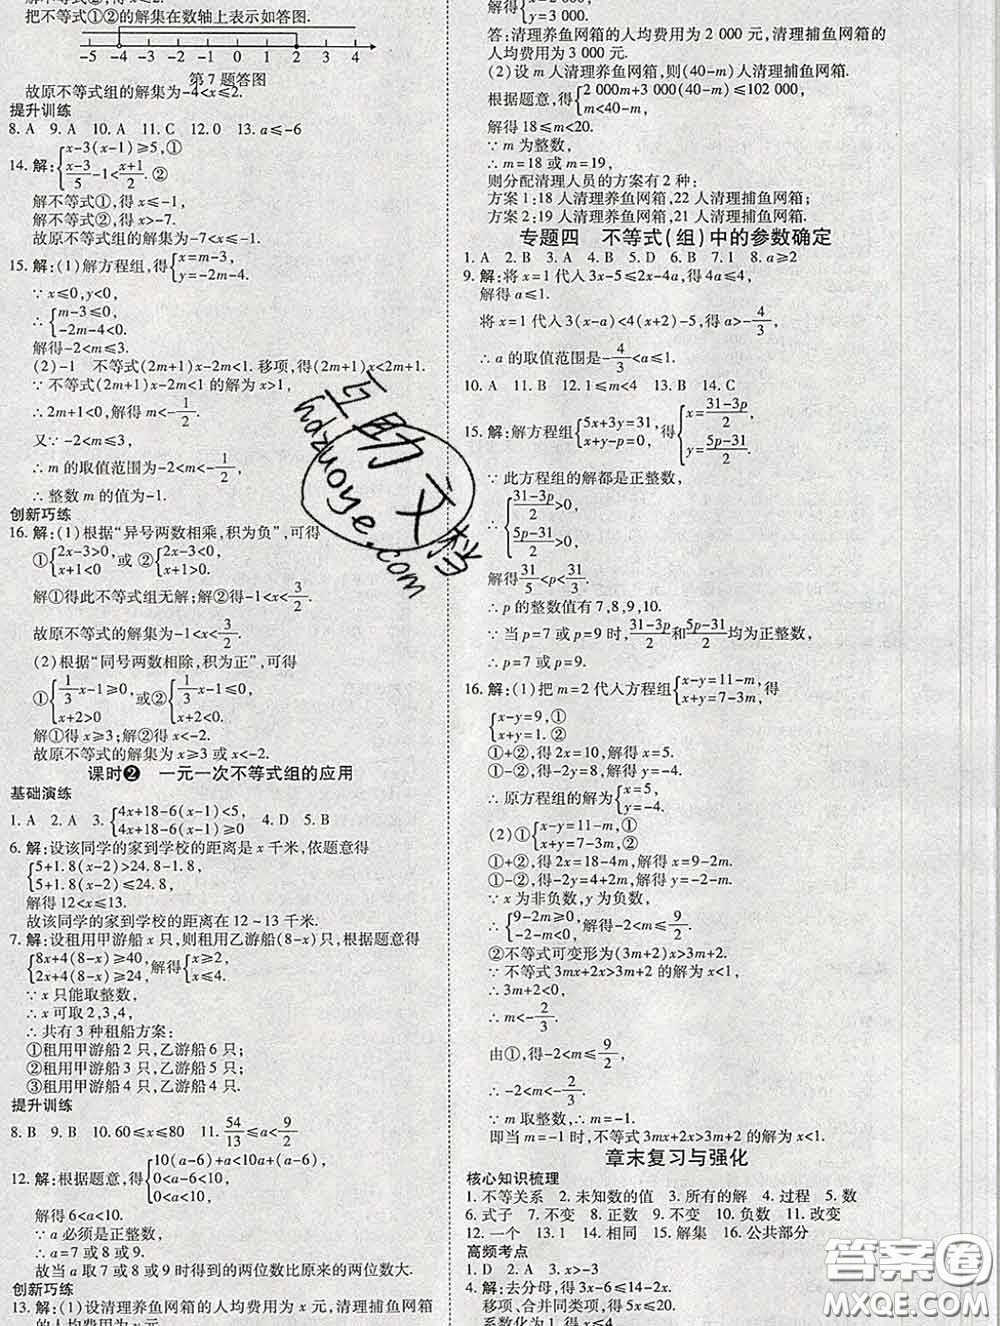 解不等式②,得x≤2.
把不等式①②的解集在数轴上表示如答图.
-5 -4 -3 -2 -1 0 1 2 3 4
第7题答图
故原不等式组的解集为-4<x≤2.
提升训练
8. A 9. A 10. A 11. C 12.0 13. a≤-6
14. 解:{x-3(x-1)≥5,①
x-3/5-1<x+1/2. ②
解不等式①,得x≤-1,
解不等式②,得x>-7.
故原不等式组的解集为-7<x≤-1.
15. 解:(1)解方程组,得{x=m-3,
y=-2m-4.
∵x≤0,y<0,
∴{m-3≤0,
-2m-4<0.
解得-2<m≤3.
(2)-1 不等式(2m+1)x-2m<1. 移项,得(2m+1)x<2m+1.
∵不等式(2m+1)x-2m<1的解为x>1,
∴2m+1<0,解得m<-1/2.
又∵-2<m≤3,
∴m的取值范围为-2<m<-1/2,
∴整数m的值为-1.
创新巧练
16. 解:(1)根据“异号两数相乘,积为负”,可得
①{2x-3>0,
x+1<0 或 ②{2x-3<0,
x+1>0.
解①得此不等式组无解;解②得-1<x<3/2.
故原不等式的解集为-1<x<3/2.
(2)根据“同号两数相除,积为正”,可得
①{1/3x-1≥0,
x+2>0 或②{1/3x-1≤0,
x+2<0.
解①得x≥3;解②得x<-2.
故原不等式的解集为x≥3或x<-2.
课时❷ 一元一次不等式组的应用
基础演练
1. A 2. A 3. {4x+18-6(x-1)<5,
4x+18-6(x-1)≥0 4. D 5. B
6. 解:设该同学的家到学校的距离是x千米,依题意得
{5+1.8(x-2)>24.8-1.8,
5+1.8(x-2)≤24.8,
解得12<x≤13.
故该同学的家到学校的距离在12~13千米.
7. 解:设租用甲游船x只,则租用乙游船(8-x)只,根据题意得
{8x+4(8-x)≥40,
2x+4(8-x)≥24, 解得{x≥2,
x≤4.
∵x只能取整数,
∴x可取2,3,4,
∴共有3种租船方案:
①租用甲游船2只,乙游船6只;
②租用甲游船3只,乙游船5只;
③租用甲游船4只,乙游船4只.
提升训练
8. B 9. B 10. 60≤x≤80 11. 54/13≤a<9/2
12. 解:根据题意,得{10(a-6)+a<10a+(a-6),
0<a-6<10,
0<a<10,
解得6<a<10.
∵a必须是正整数,
∴a=7或8或9.
故当a取7或8或9时得到的两位数比原来的两位数大.
创新巧练
13. 解:(1)设清理养鱼网箱的人均费用为x元,清理捕鱼网箱
的人均费用为y元
解得{
y=3 000.
答:清理养鱼网箱的人均费用为2 000元,清理捕鱼网箱的
人均费用为3 000元.
(2)设m人清理养鱼网箱,则(40-m)人清理捕鱼网箱.
根据题意,得{2 000m+3 000(40-m)≤102 000,
m<40-m,
解得18≤m<20.
∵m为整数,
∴m=18或m=19,
则分配清理人员的方案有2种:
方案1:18人清理养鱼网箱,22人清理捕鱼网箱;
方案2:19人清理养鱼网箱,21人清理捕鱼网箱.
专题四 不等式(组)中的参数确定
1. A 2. B 3. A 4. B 5. D 6. B 7. 1 8. a≥2
9. 解:将x=1代入3x-5≤2x-4a,得4a≤4,
解得a≤1.
将x=1代入3(x-a)<4(x+2)-5,得a>-4/3,
∴a的取值范围是-4/3<a≤1.
10. A 11. B 12. 1≤m<4 13. B 14. C
15. 解:解方程组{5x+3y=31,
x+y-p=0, 得{x=31-3p/2,
y=5p-31/2.
∵此方程组的解都是正整数,
∴{31-3p/2>0,
5p-31/2>0,
解得31/5<p<31/3.
∴p的整数值有7,8,9,10.
∵当p=7或p=9时,31-3p/2和5p-31/2均为正整数,
∴p=7或p=9.
16. 解:(1)把m=2代入方程组{x-y=11-m,
x+y=7-3m, 得
{x-y=9,①
x+y=1. ②
①+②,得2x=10,解得x=5.
①-②,得-2y=8,解得y=-4.
∴原方程组的解为{x=5,
y=-4.
(2)①{x-y=11-m,①
x+y=7-3m,②
①+②,得2x=18-4m,解得x=9-2m.
①-②,得-2y=4+2m,解得y=-2-m.
∵x为非负数,y为负数,
∴{9-2m≥0,
-2-m<0, 解得-2<m≤9/2.
②不等式可变形为(3m+2)x>3m+2.
∵不等式3mx+2x>3m+2的解为x<1,
∴3m+2<0,
∴m<-2/3.
由①,得-2<m≤9/2,
∴-2<m<-2/3.
∵m取整数,∴m=-1.
即当m=-1时,不等式3mx+2x>3m+2的解为x<1.
章末复习与强化
核心知识梳理
1. 不等关系 2. 未知数的值 3. 所有的解 4. 过程 5. 数
6. 式子 7. 不变 8. 正数 9. 不变 10. 负数 11. 改变
12. 一个 13. 1 14. 相同 15. 解集 16. 公共部分
高频考点
1. D 2. A 3. x>-3
4. 解:去分母,得3x-6≤14-2x.
移项、合并同类项,得5x≤20.
系数化为1,得x≤4.
互助文档
hdzuoye.com
答案圈
MXQE.COM